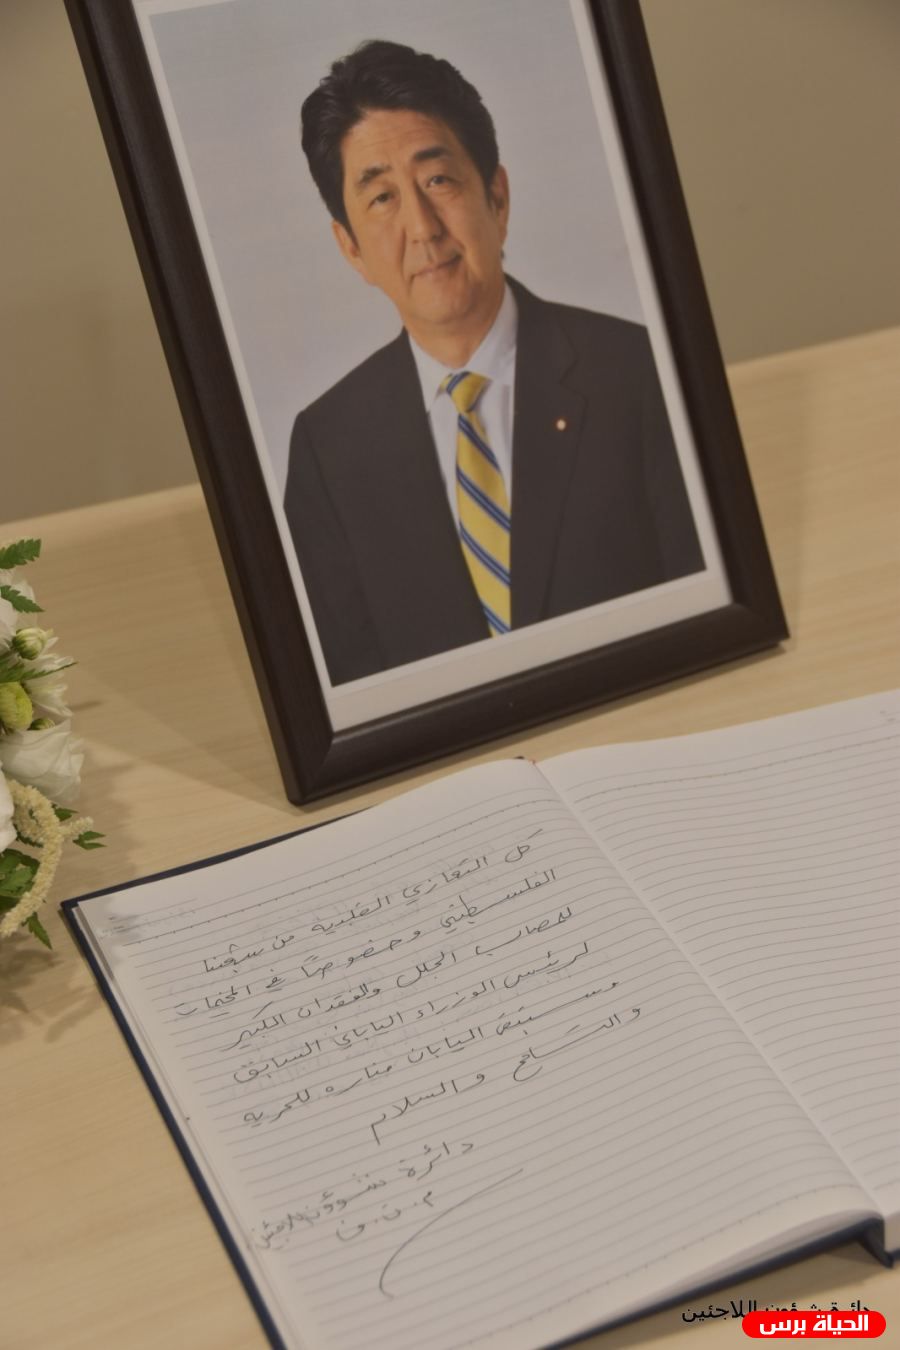 كل التعازي القلبية من شعبنا
الفلسطيني وخصوصًا في المخيمات
للمصاب الجلل والفقدان الكبير
لرئيس الوزراء الياباني السابق
وستبقى اليابان مناره للحريه
والتسامح والسلام
دائرة شؤون اللاجئين
م.ت.ف
دائرة شؤون اللاجئين
الحياة برس